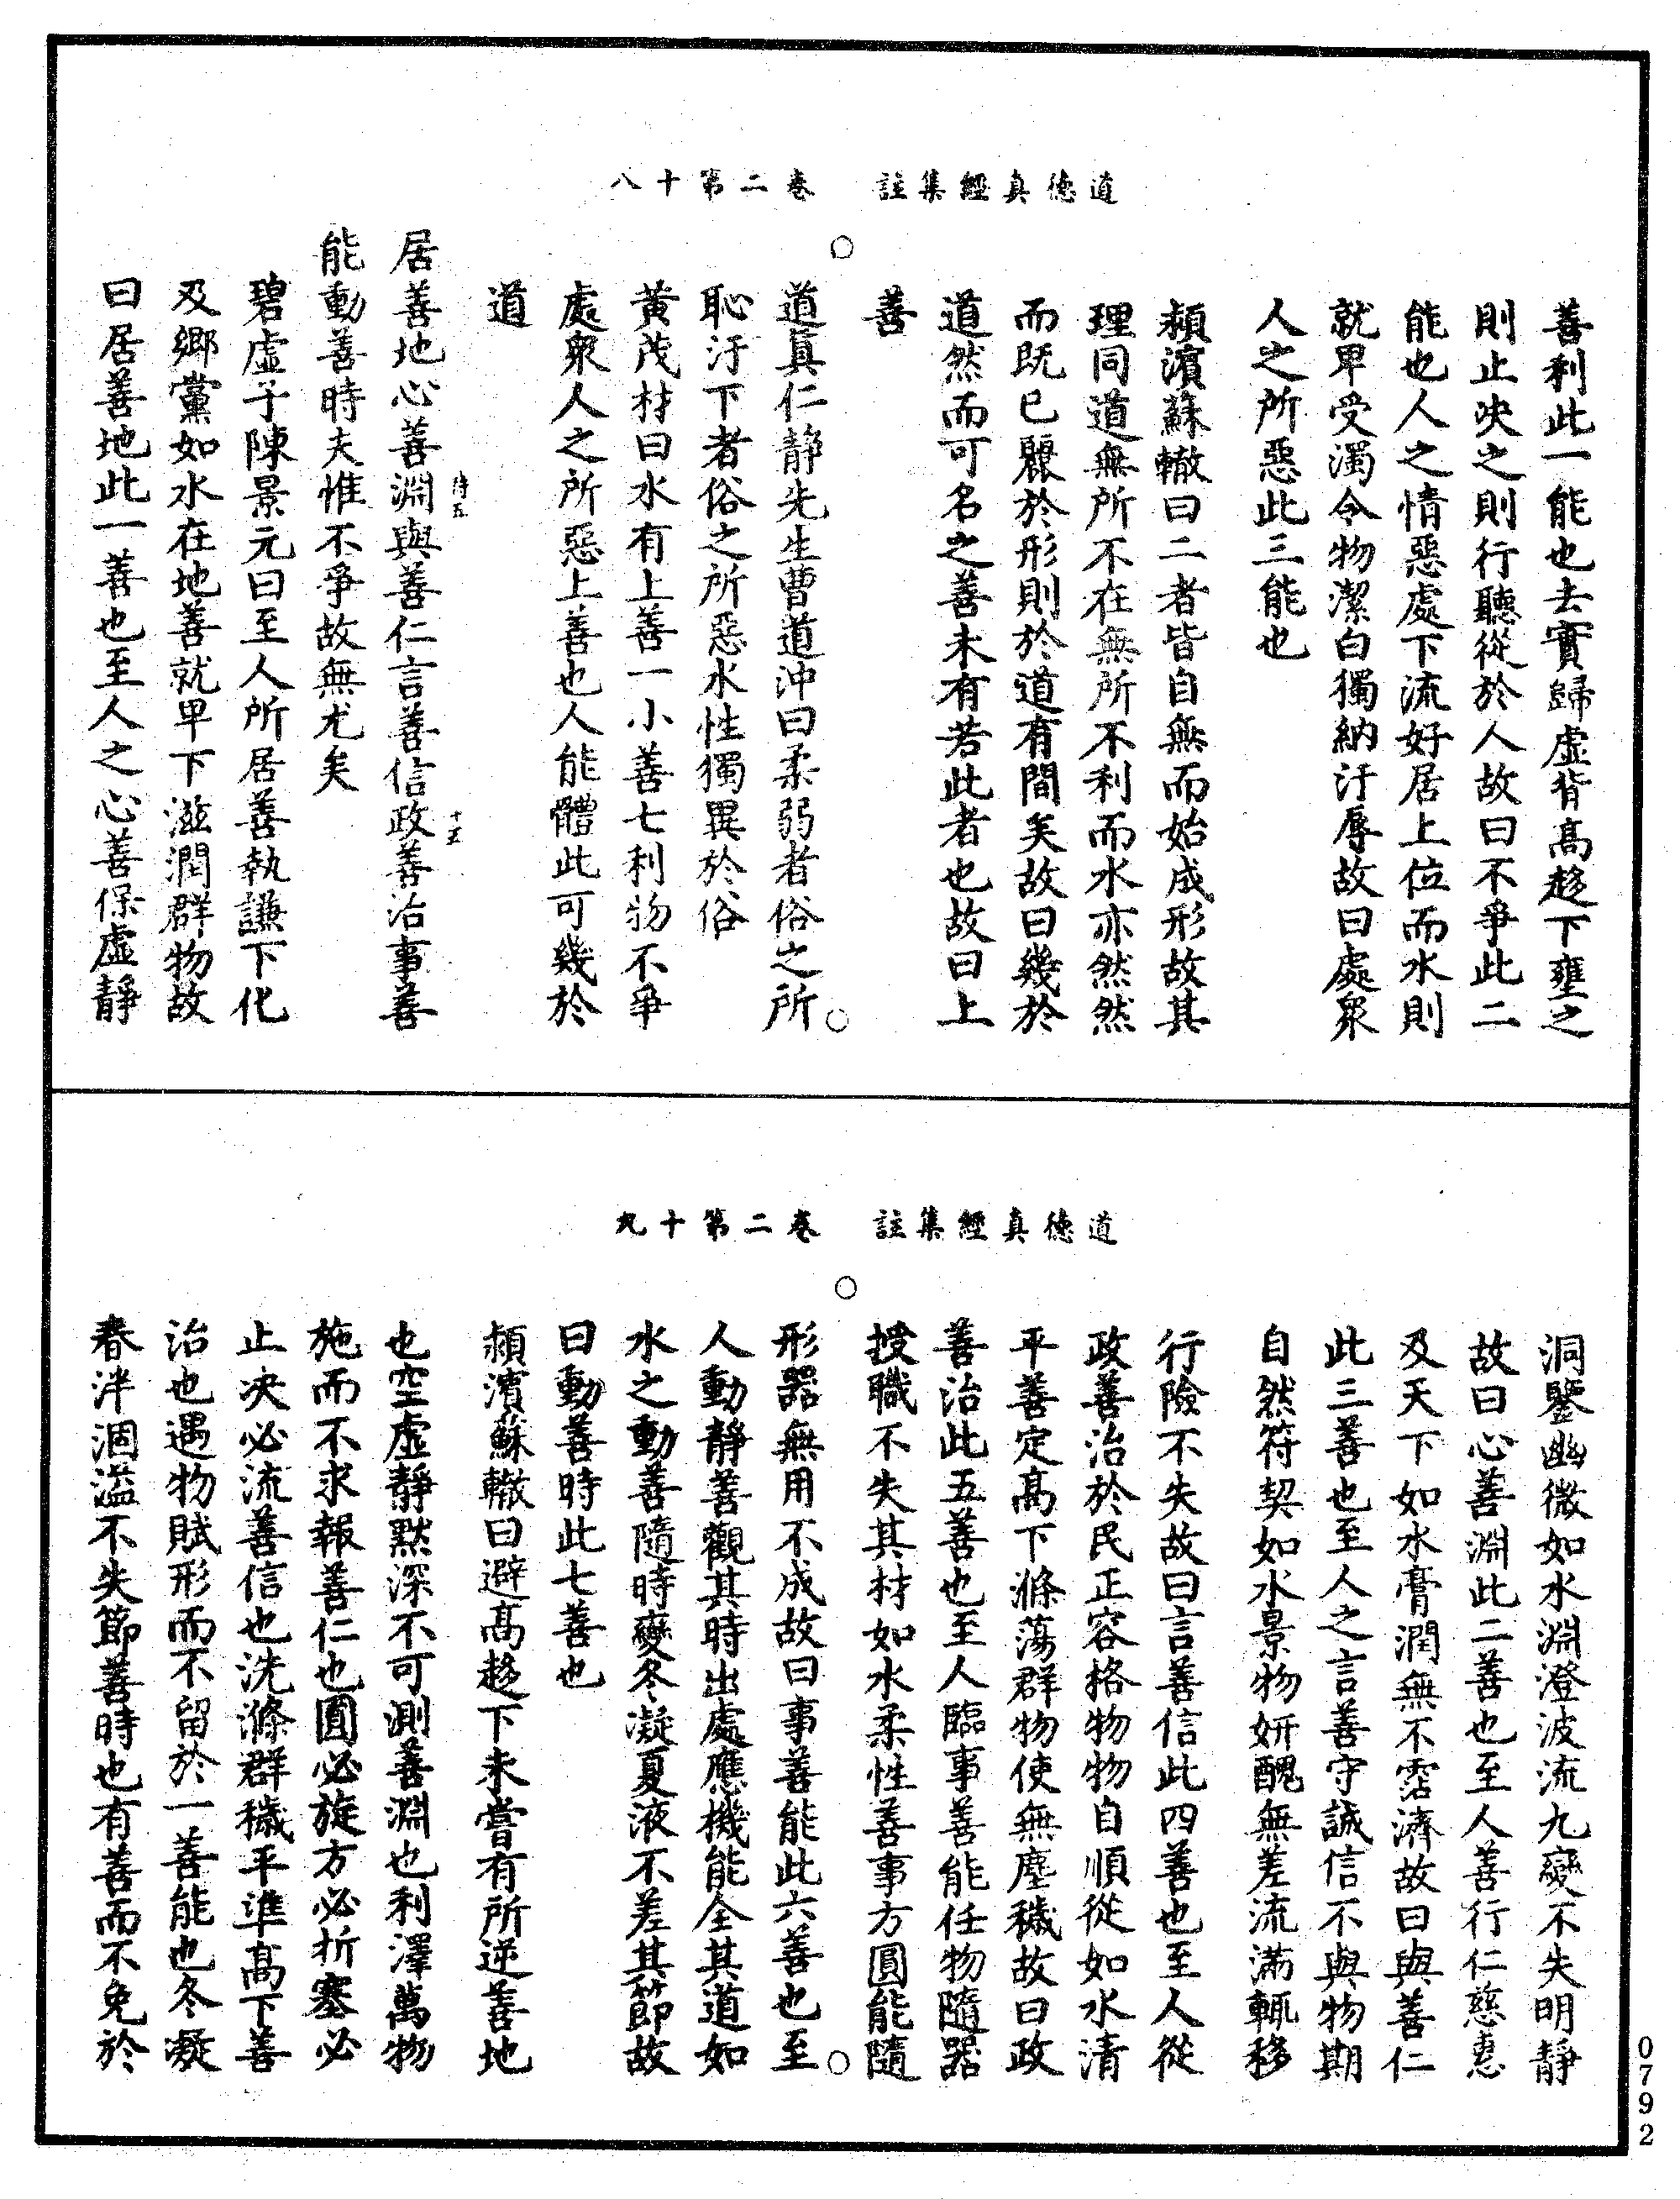 道德真經集註　卷二第十八
善利此一能也去實歸虛背高趍下壅之
則止决之則行聽從於人故曰不爭此二
能也人之情惡處下流好居上位而水則
就卑受濁令物潔白獨納汙辱故曰處衆
人之所惡此三能也
頴濱蘇轍曰二者皆自無而始成形故其
理同道無所不在無所不利而水亦然然
而既已麗於形則於道有間矣故曰幾於
道然而可名之善未有若此者也故曰上
善
道真仁静先生曹道沖曰柔弱者俗之所
恥汙下者俗之所惡水性獨異於俗
黃茂材曰水有上善一小善七利物不爭
處衆人之所惡上善也人能體此可幾於
道
居善地心善淵與善仁言善信政善治事善
待五
十五
能動善時夫惟不爭故無尤矣
碧虛子陳景元曰至人所居善執謙下化
及鄉黨如水在地善就卑下滋潤群物故
曰居善地此一善也至人之心善保虛靜
道德真經集註　卷二第十九
洞鑒幽微如水淵澄波流九變不失明靜
故曰心善淵此二善也至人善行仁慈惠
及天下如水膏潤無不霑濟故曰與善仁
此三善也至人之言善守誠信不與物期
自然符契如水景物妍醜無差流滿輒移
行險不失故曰言善信此四善也至人從
政善治於民正容格物物自順從如水清
平善定高下滌蕩群物使無塵穢故曰政
善治此五善也至人臨事善能任物隨器
授職不失其材如水柔性善事方圓能隨
形器無用不成故曰事善能此六善也至
人動靜善觀其時出處應機能全其道如
水之動善隨時變冬凝夏液不差其節故
曰動善時此七善也
頴濱蘇轍曰避高趍下未嘗有所逆善地
也空虛靜默深不可測善淵也利澤萬物
施而不求報善仁也圓必旋方必折塞必
止决必流善信也洗滌群穢平準高下善
治也遇物賦形而不留於一善能也冬凝
春泮涸溢不失節善時也有善而不免於
0792